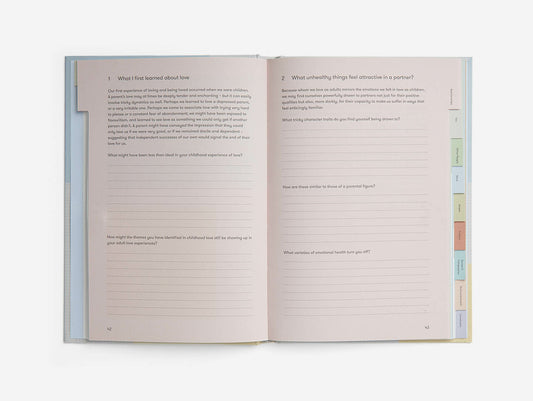 1 What I first learned about love
Our first experience of loving and being loved occurred when we were children.
A parent's love may at times be deeply tender and enchanting – but it can easily
involve tricky dynamics as well. Perhaps we learned to love a depressed parent,
or a very irritable one. Perhaps we came to associate love with trying very hard
to please or a constant fear of abandonment; we might have been exposed to
favouritism, and learned to see love as something we could only get if another
person didn't. A parent might have conveyed the impression that they could
only love us if we were very good, or if we remained docile and dependent –
suggesting that independent successes of our own would signal the end of their
love for us.
What might have been less than ideal in your childhood experience of love?
How might the themes you have identified in childhood love still be showing up in
your adult love experiences?
42
2 What unhealthy things feel attractive in a partner?
Because whom we love as adults mirrors the emotions we felt in love as children,
we may find ourselves powerfully drawn to partners not just for their positive
qualities but also, more darkly, for their capacity to make us suffer in ways that
feel enticingly familiar.
What tricky character traits do you find yourself being drawn to?
How are these similar to those of a parental figure?
What varieties of emotional health turn you off?
43